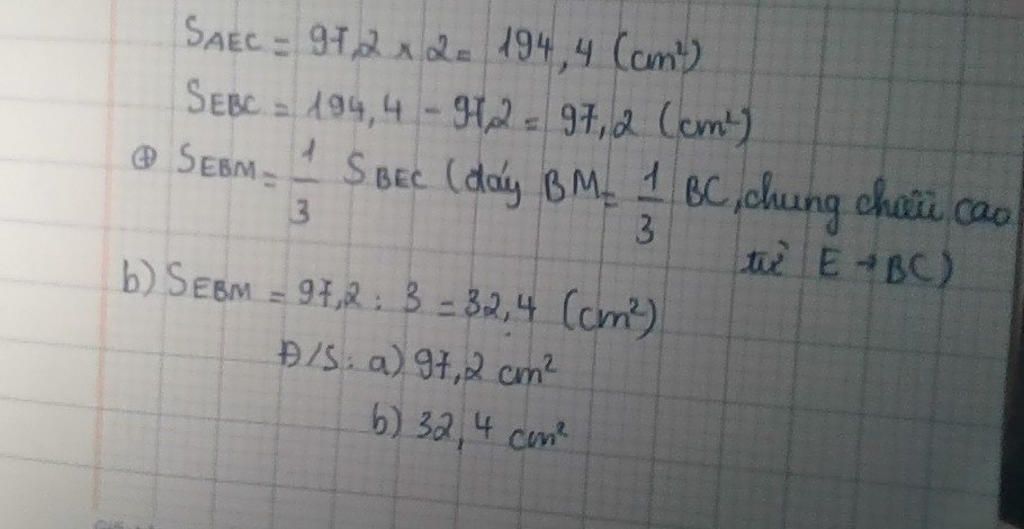 SAEC = 97,2 x 2 = 194,4 (cm²)
SEBC = 194,4 - 97,2 = 97,2 (cm²)
⊕ SEBM = 1/3 SBEC (đáy BM = 1/3 BC, chung chiều cao
từ E → BC)
b) SEBM = 97,2 : 3 = 32,4 (cm²)
Đ/S: a) 97,2 cm²
b) 32,4 cm²